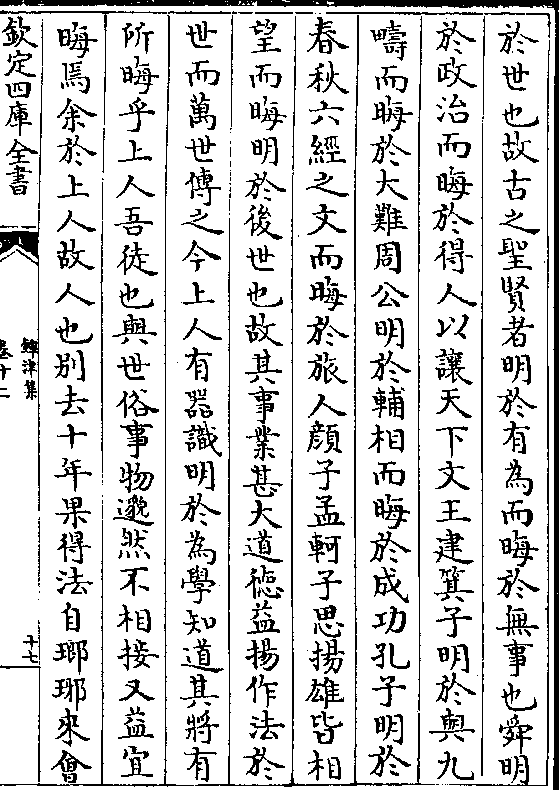 於世也故古之聖賢者明於有為而晦於無事也舜明
於政治而晦於得人以讓天下文王建箕子明於輿九
疇而晦於大難周公明於輔相而晦於成功孔子明於
春秋六經之文而晦於旅人顔子孟軻子思揚雄皆相
望而晦明於後世也故其事業甚大道徳益揚作法於
世而萬世傳之今上人有器識明於為學知道其將有
所晦乎上人吾徒也與世俗事物邈然不相接又益宜
晦焉余於上人故人也別去十年果得法自瑯琊來會
欽定四庫全書
鐔津集
卷十二
十七